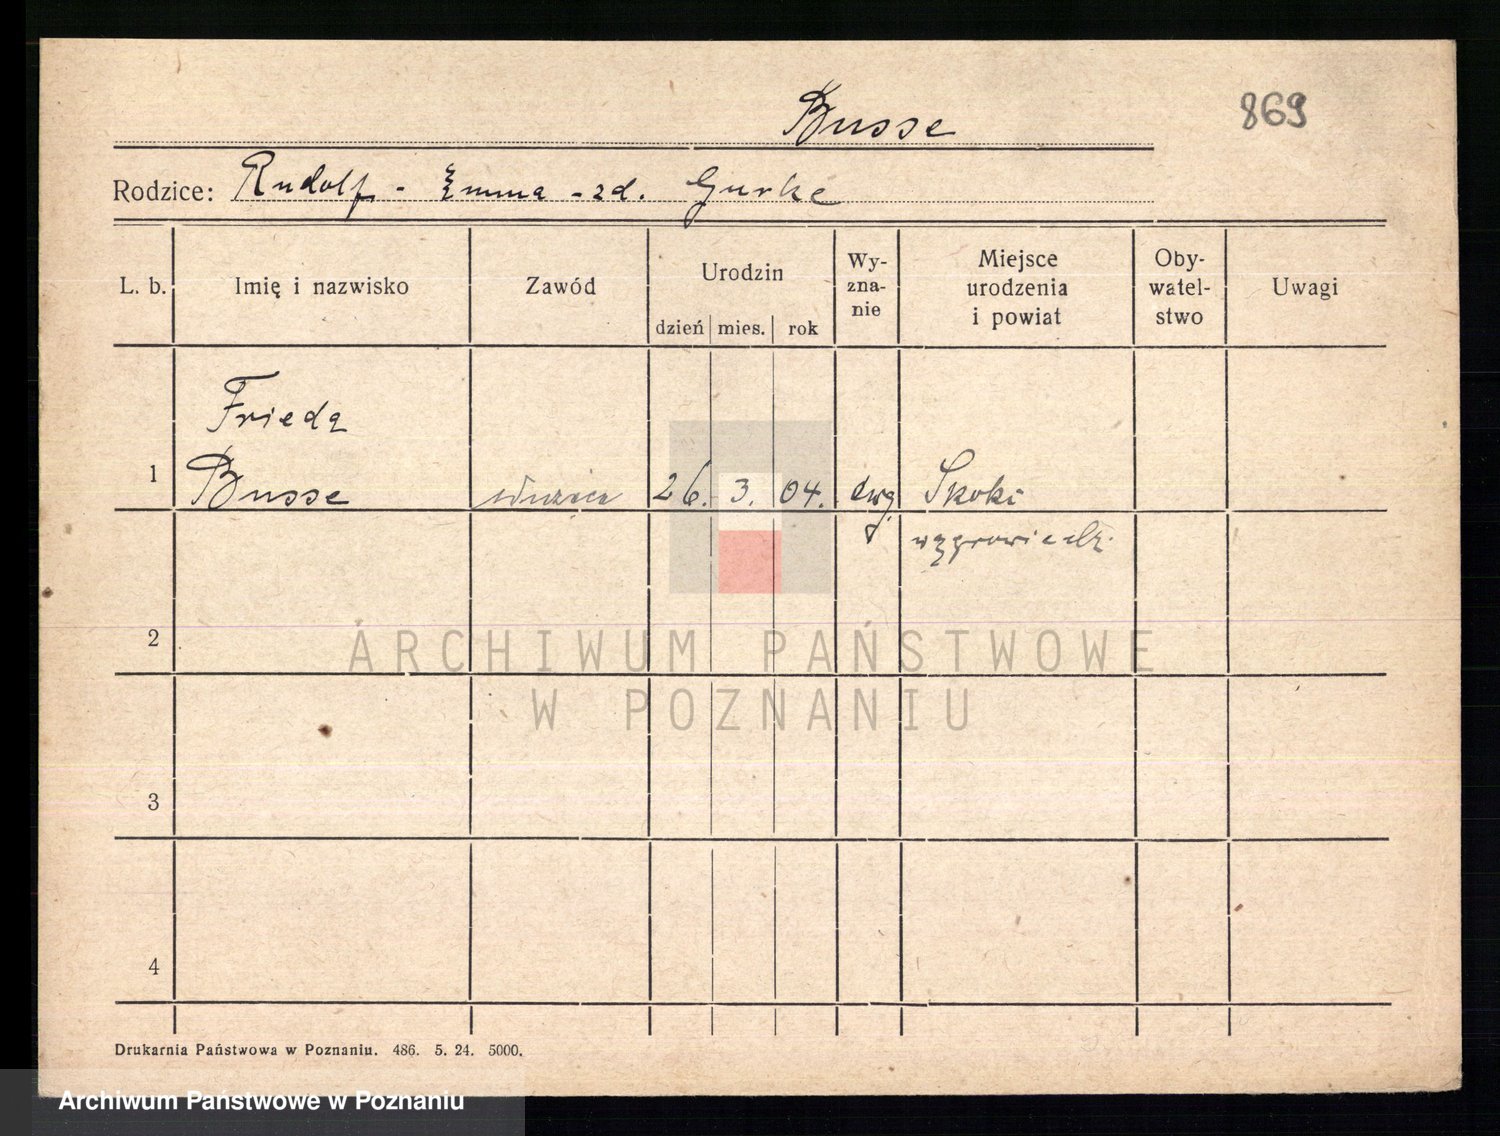 Busse
869
Rodzice: Rudolf - Emma - zd. Gurke
L. b.
Imię i nazwisko
Zawód
Urodzin
dzień
mies.
rok
Wy-
zna-
nie
Miejsce
urodzenia
i powiat
Oby-
watel-
stwo
Uwagi
Frieda
1
Busse
26. 3. 04. ewg. Skoki
2
3
4
Drukarnia Państwowa w Poznaniu. 486. 5. 24. 5000.
ARCHIWUM PAŃSTWOWE
W POZNANIU
Archiwum Państwowe w Poznaniu